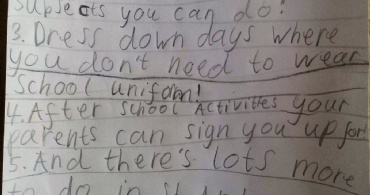 subjects you can do!
3. Dress down days where
you don't need to wear
school uniform!
4. After school activities your
parents can sign you up for!
5. And there's lots more
to do in